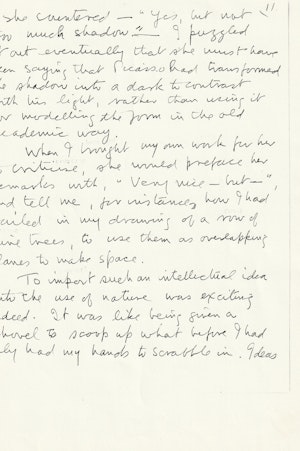 11
she countered — "Yes, but not
so much shadow" — I puzzled
out eventually that she must have
een saying that Picasso had transformed
he shadow into a dark to contrast
ith his light, rather than using it
or modelling the form in the old
cademic way.
When I brought my own work for her
criticise, she would preface her
emarks with, "Very nice — but —",
nd tell me, for instance, how I had
ailed in my drawing of a row of
ine trees, to use them as overlapping
lanes to make space.
To import such an intellectual idea
nto the use of nature was exciting
deed. It was like being given a
hovel to scoop up what before I had
ly had my hands to scrabble in. Ideas